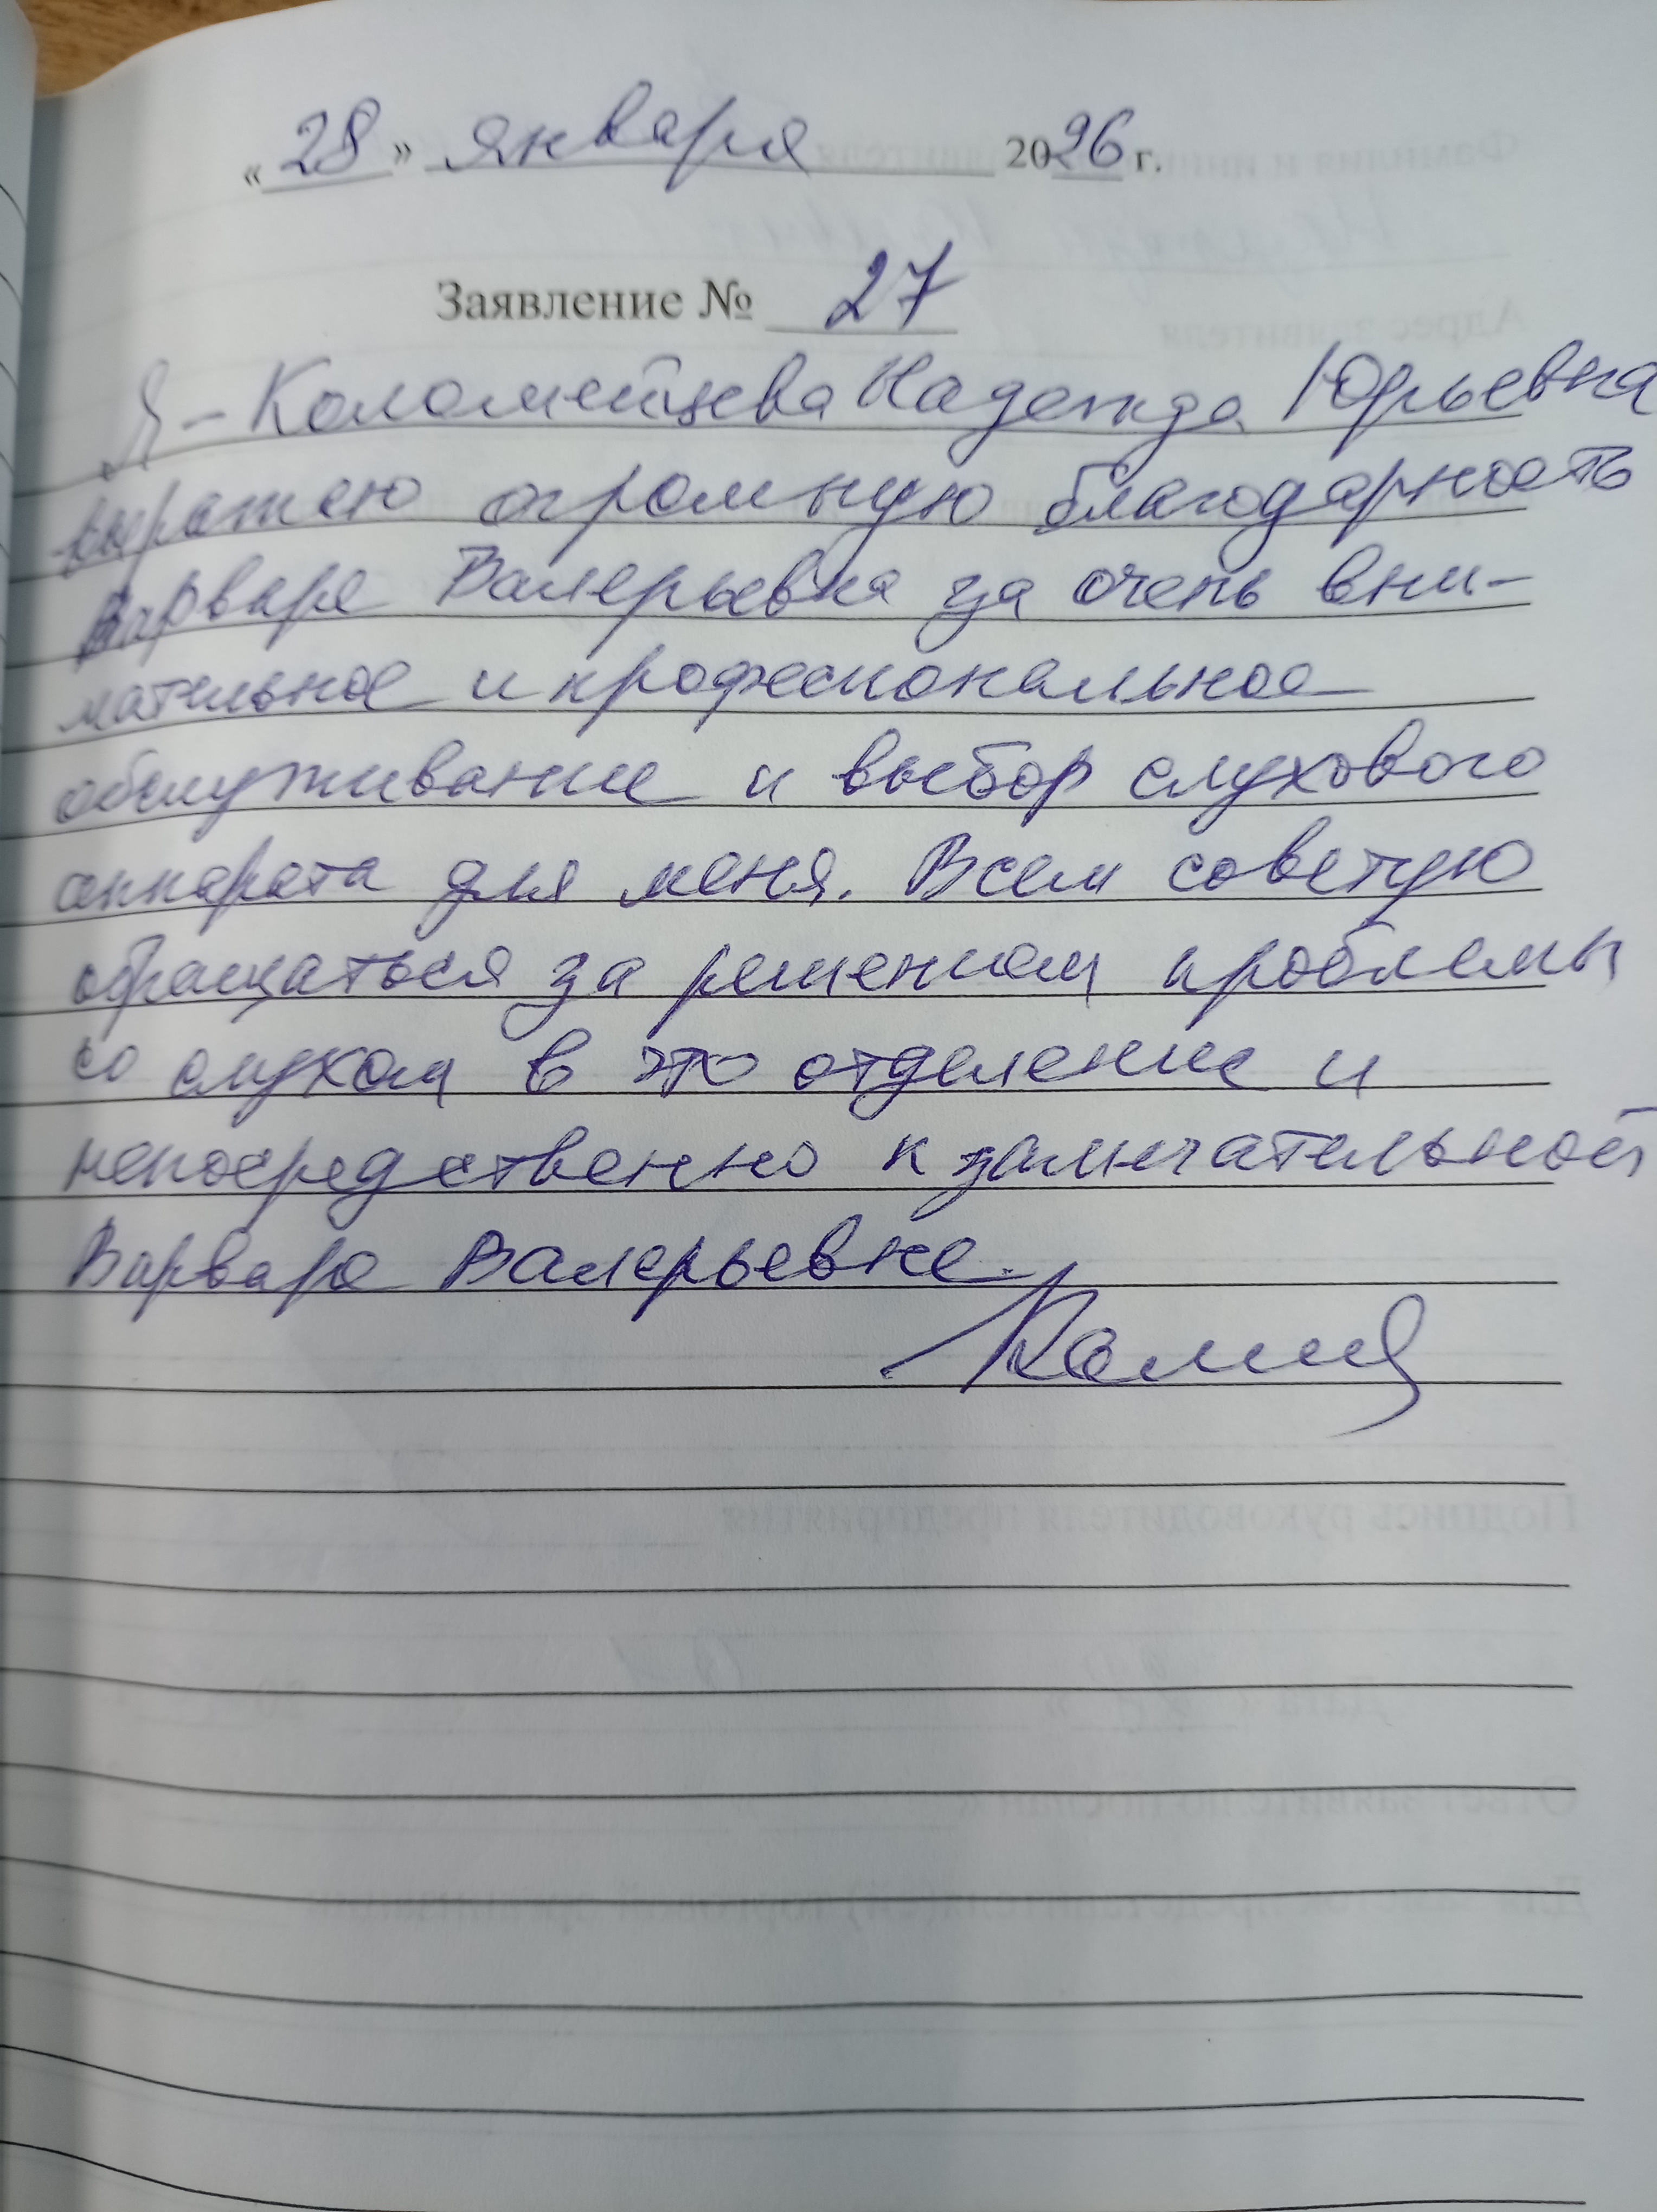 «28» января 2026 г.
Заявление № 27
Я – Коломейцева Надежда Юрьевна
выражаю огромную благодарность
Варваре Валерьевна за очень вни-
мательное и профессиональное
обслуживание и выбор слухового
аппарата для меня. Всем советую
обращаться за решением проблемы
со слухом в это отделение и
непосредственно к замечательной
Варваре Валерьевне.